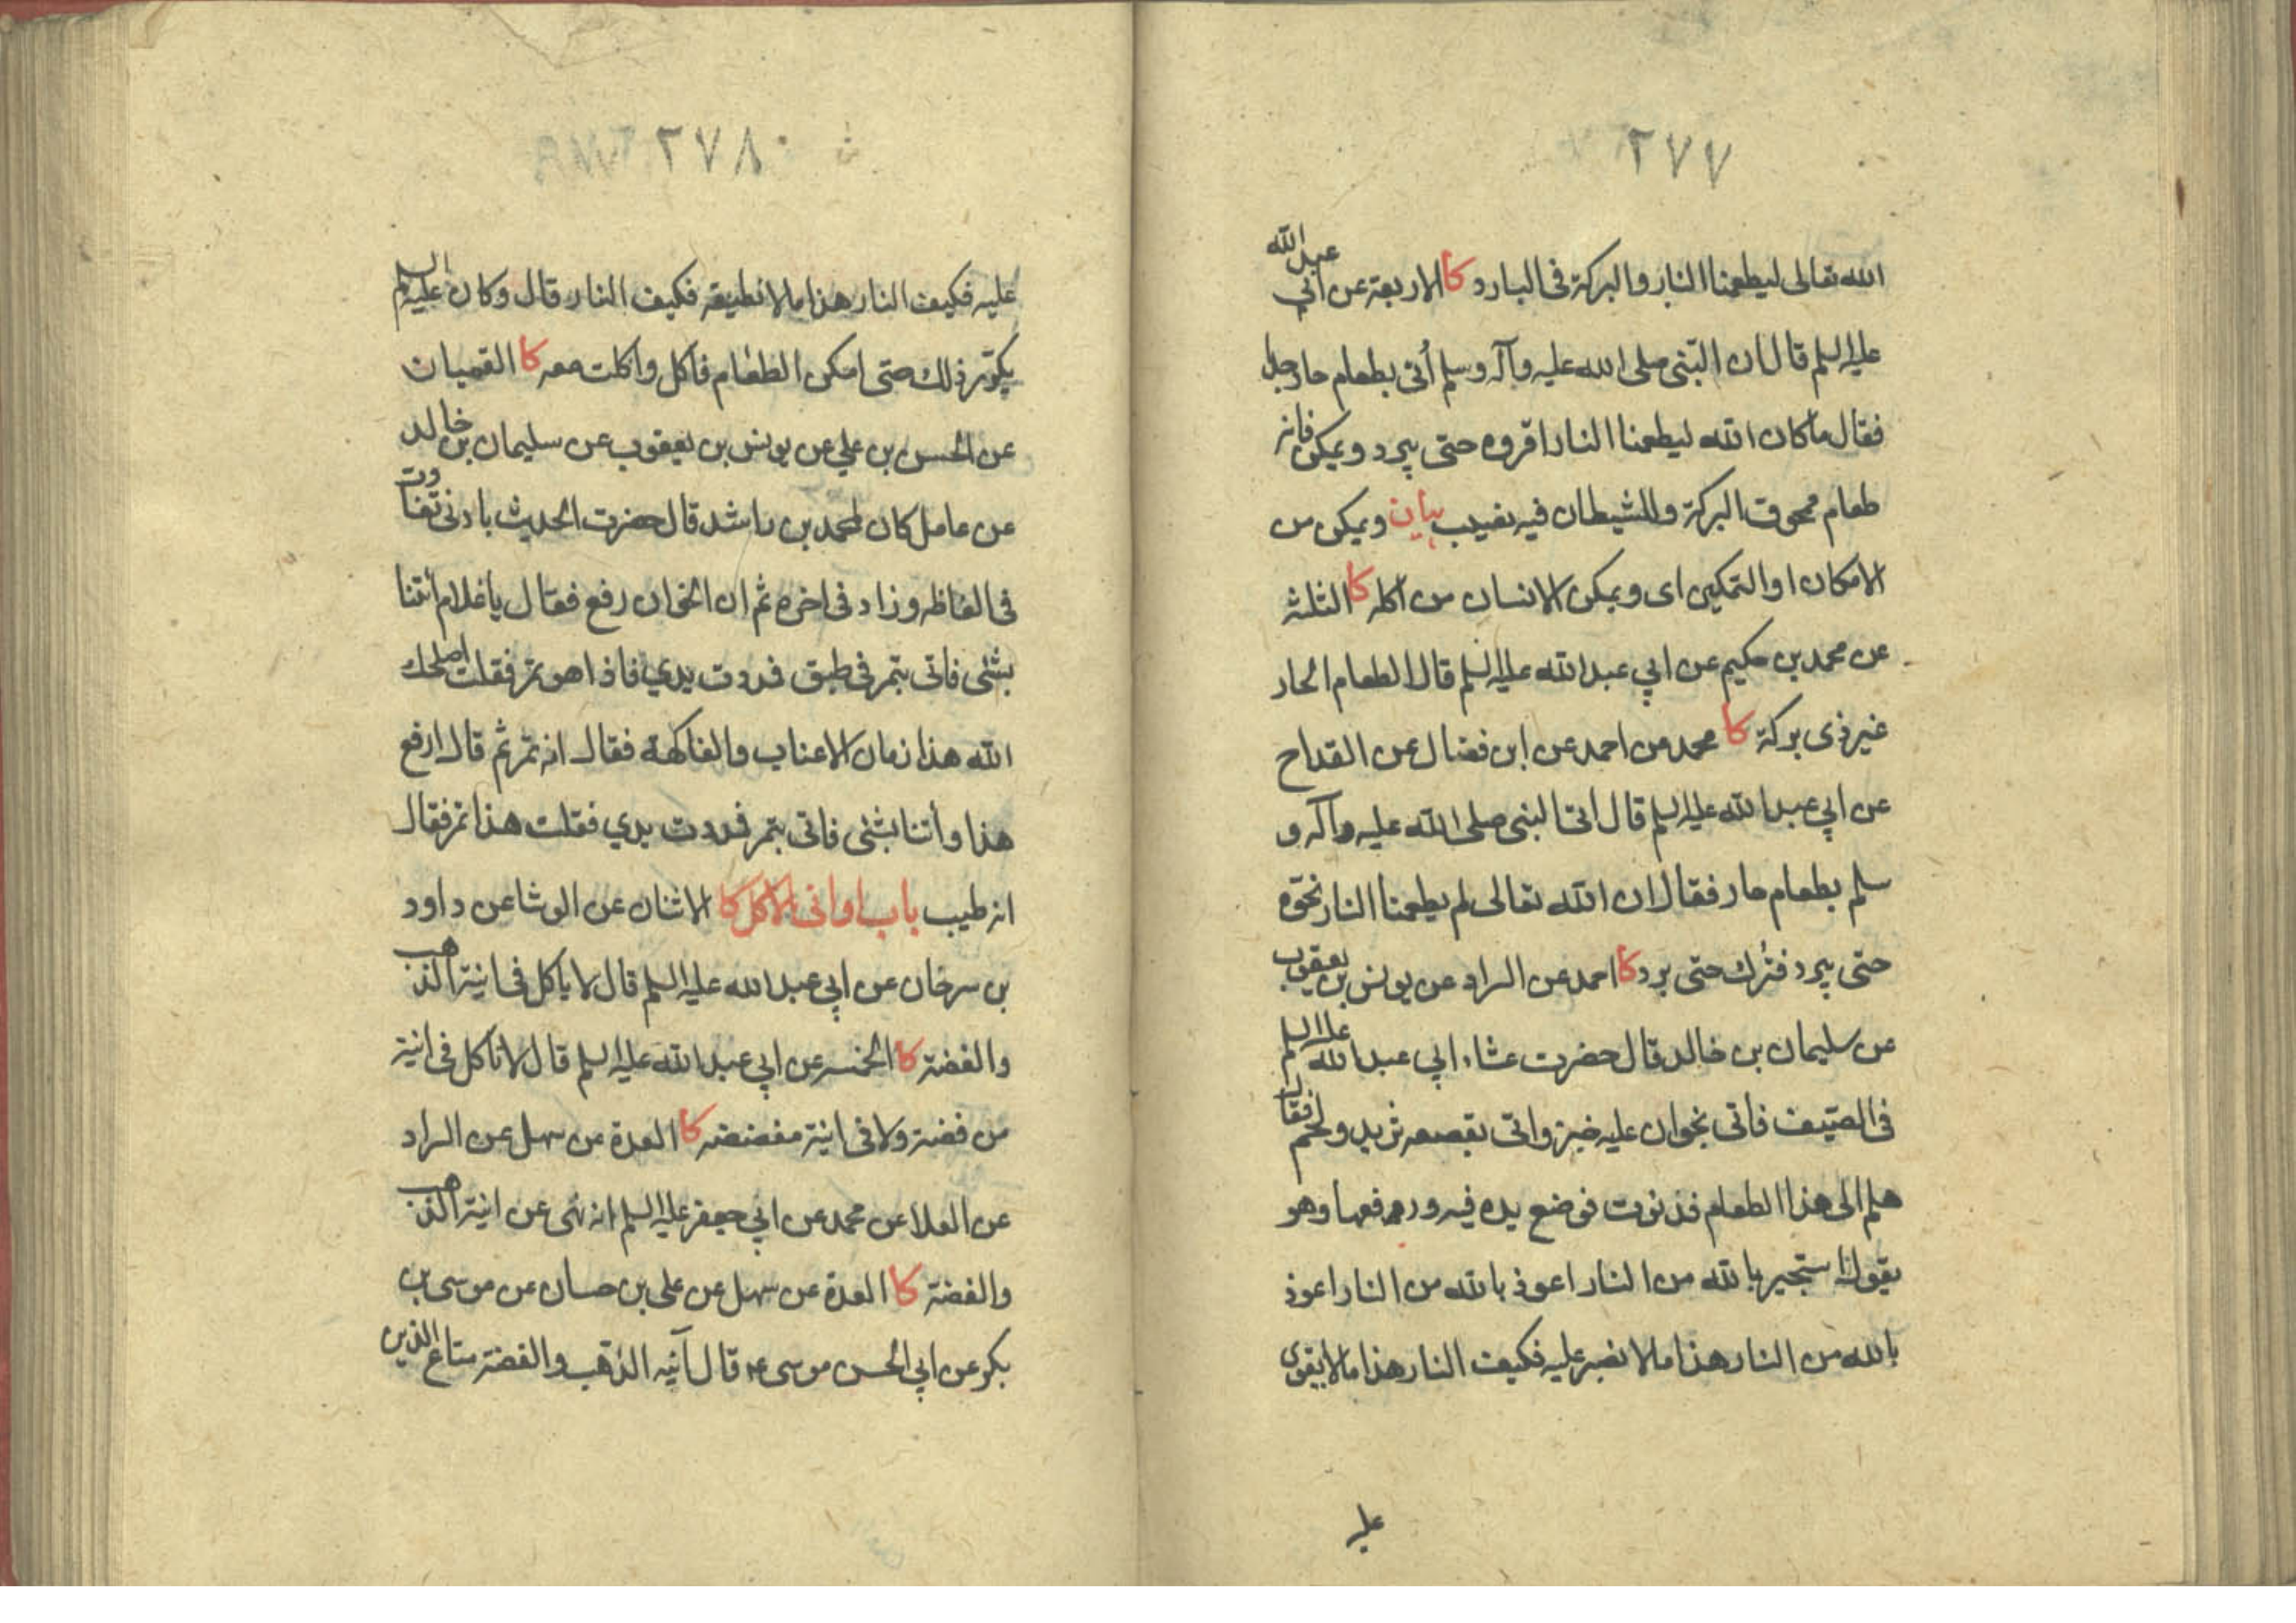 ٢٧٧
الله تعالى ليطعمنا النار والبركة في البارد كا الاربعة عن ابي عبدالله
عليه السلم قال ان النبي صلى الله عليه وآله وسلم أتى بطعام حار جدا
فقال ما كان الله ليطعمنا النار اقروه حتى يبرد ويمكن فانه
طعام ممحوق البركة وللشيطان فيه نصيب بيان ويمكن من
الامكان او التمكين اى ويمكن الانسان من اكله كا الثلثة
عن محمد بن حكيم عن ابي عبدالله عليه السلم قال الطعام الحار
غير ذى بركة كا محمد عن احمد عن ابن فضال عن القداح
عن ابي عبدالله عليه السلم قال اتى النبي صلى الله عليه وآله و
سلم بطعام حار فقال ان الله تعالى لم يطعمنا النار نحوه
حتى يبرد فترك حتى برد كا احمد عن السراد عن يونس بن يعقوب
عن سليمان بن خالد قال حضرت عشاء ابي عبدالله عليه السلم
في الصيف فاتى بخوان عليه خبز واتى بقصعه ثريد ولحم فقال
هلم الى هذا الطعام فدنوت فوضع يده فيه ورفعها وهو
يقول استجير بالله من النار اعوذ بالله من النار اعوذ
بالله من النار هذا ما لا نصبر عليه فكيف النار هذا ما لا يقوى
عليه
٢٧٨
عليه فكيف النار هذا ما لا نطيقه فكيف النار قال وكان عليه السلم
يكرر ذلك حتى امكن الطعام فاكل واكلت معه كا القميان
عن الحسن بن علي عن يونس بن يعقوب عن سليمان بن خالد
عن عامل كان لمحمد بن راشد قال حضرت الحديث بادنى تفاوت
في الفاظه وزاد في اخره ثم ان الخوان رفع فقال يا غلام أتنا
بشئ فاتى بتمر في طبق فمددت يدي فاذا هو تمر فقلت اصلحك
الله هذا زمان الاعناب والفاكهة فقال انه تمر ثم قال ارفع
هذا وأتنا بشئ فاتى بتمر فمددت يدي فقلت هذا تمر فقال
انه طيب باب اوانى الاكل كا الاثنان عن الوشا عن داود
بن سرحان عن ابي عبدالله عليه السلم قال لا ياكل في انية الذهب
والفضة كا الخمسه عن ابي عبدالله عليه السلم قال لا تاكل في انية
من فضة ولا في انية مفضضه كا العدة عن سهل عن السراد
عن العلا عن محمد عن ابي جعفر عليه السلم انه نهى عن انية الذهب
والفضة كا العدة عن سهل عن علي بن حسان عن موسى بن
بكر عن ابي الحسن موسى ع قال آنيه الذهب والفضة متاع الذين